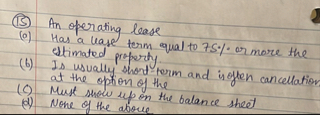 (15) An operating lease
(a) Has a lease term equal to 75% or more the
estimated property
(b) Is usually short term and is often cancellation
at the option of the
(c) Must show up on the balance sheet
(d) None of the above